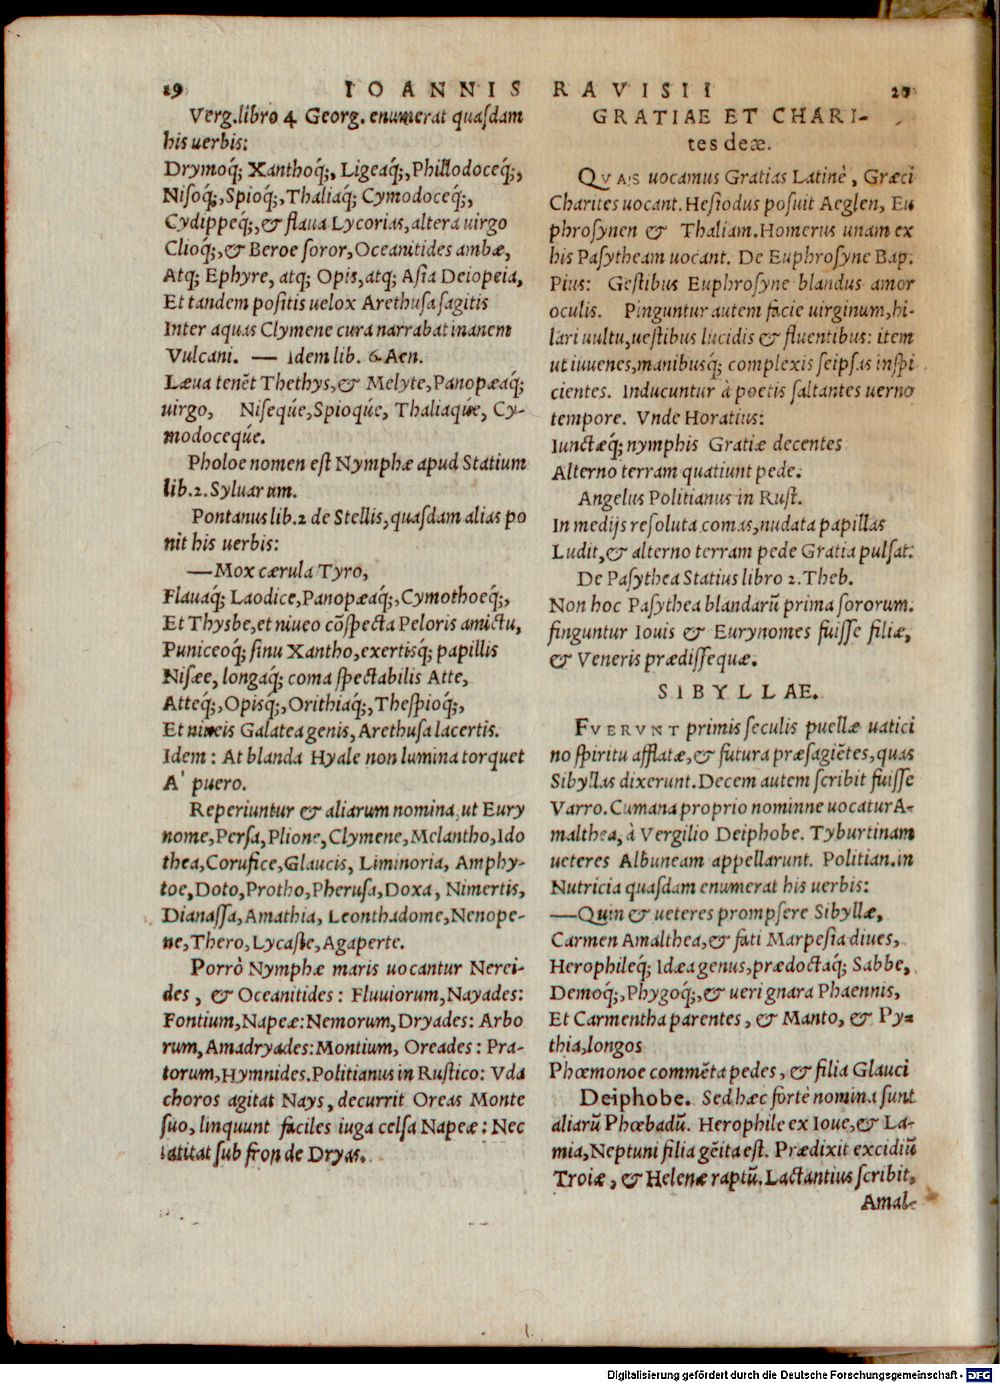 19 IOANNIS RAVISII
Verg.libro 4 Georg. enumerat quaſdam
his uerbis:
Drymoq́;, Xanthoq́;, Ligeaq́;, Phillodoceq́;,
Niſoq́;, Spioq́;, Thaliaq́; Cymodoceq́;,
Cydippeq́;, & flaua Lycorias, altera uirgo
Clioq́;, & Beroe ſoror, Oceanitides ambæ,
Atq; Ephyre, atq; Opis, atq; Aſia Deiopeia,
Et tandem poſitis uelox Arethuſa ſagitis
Inter aquas Clymene cura narrabat inanem
Vulcani. — idem lib. 6. Aen.
Læua tenēt Thethys, & Melyte, Panopæaq́;
uirgo, Niſeqúe, Spioqúe, Thaliaqúe, Cy-
modoceqúe.
Pholoe nomen eſt Nymphæ apud Statium
lib. 2. Syluarum.
Pontanus lib. 2 de Stellis, quaſdam alias po
nit his uerbis:
— Mox cærula Tyro,
Flauaq́; Laodice, Panopæaq́;, Cymothoeq́;,
Et Thysbe, et niueo cōſpecta Peloris amictu,
Puniceoq́; ſinu Xantho, exertisq́; papillis
Niſæe, longaq́; coma ſpectabilis Atte,
Atteq́;, Opisq́;, Orithiaq́;, Theſpioq́;,
Et niueis Galatea genis, Arethuſa lacertis.
Idem: At blanda Hyale non lumina torquet
A' puero.
Reperiuntur & aliarum nomina, ut Eury
nome, Perſa, Plione, Clymene, Melantho, Ido
thea, Corufice, Glaucis, Liminoria, Amphy-
toe, Doto, Protho, Pheruſa, Doxa, Nimertis,
Dianaſſa, Amathia, Leonthadome, Nenope-
ne, Thero, Lycaſte, Agaperte.
Porrò Nymphæ maris uocantur Nerei-
des, & Oceanitides: Fluuiorum, Nayades:
Fontium, Napeæ: Nemorum, Dryades: Arbo
rum, Amadryades: Montium, Oreades: Pra-
torum, Hymnides. Politianus in Ruſtico: Vda
choros agitat Nays, decurrit Oreas Monte
ſuo, linquunt faciles iuga celſa Napeæ: Nec
latitat ſub fronde Dryas.
GRATIAE ET CHARI-
tes deæ.
QVAS uocamus Gratias Latinè, Græci
Charites uocant. Heſiodus poſuit Aeglen, Eu
phroſynen & Thaliam. Homerus unam ex
his Paſytheam uocant. De Euphroſyne Bap.
Pius: Geſtibus Euphroſyne blandus amor
oculis. Pinguntur autem facie uirginum, hi-
lari uultu, ueſtibus lucidis & fluentibus: item
ut iuuenes, manibusq́; complexis ſeipſas inſpi
cientes. Inducuntur à poetis ſaltantes uerno
tempore. Vnde Horatius:
Iunctæq́; nymphis Gratiæ decentes
Alterno terram quatiunt pede.
Angelus Politianus in Ruſt.
In medijs reſoluta comas, nudata papillas
Ludit, & alterno terram pede Gratia pulſat.
De Paſythea Statius libro 2. Theb.
Non hoc Paſythea blandarū prima ſororum.
finguntur Iouis & Eurynomes fuiſſe filiæ,
& Veneris prædiſſequæ.
SIBYLLAE.
FVERVNT primis ſeculis puellæ uatici
no ſpiritu afflatæ, & futura præſagiētes, quas
Sibyllas dixerunt. Decem autem ſcribit fuiſſe
Varro. Cumana proprio nominne uocatur A-
malthea, à Vergilio Deiphobe. Tyburtinam
ueteres Albuneam appellarunt. Politian. in
Nutricia quaſdam enumerat his uerbis:
— Quin & ueteres prompſere Sibyllæ,
Carmen Amalthea, & fati Marpeſia diues,
Herophileq́; Idæa genus, prædoctaq́; Sabbe,
Demoq́;, Phygoq́;, & ueri gnara Phaennis,
Et Carmentha parentes, & Manto, & Py-
thia, longos
Phœmonoe commēta pedes, & filia Glauci
Deiphobe. Sed hæc fortè nomina ſunt
aliarū Phœbadū. Herophile ex Ioue, & La-
mia, Neptuni filia gēita eſt. Prædixit excidiū
Troiæ, & Helenæ raptū. Lactantius ſcribit,
Amal-
Digitalisierung gefördert durch die Deutsche Forschungsgemeinschaft - DFG